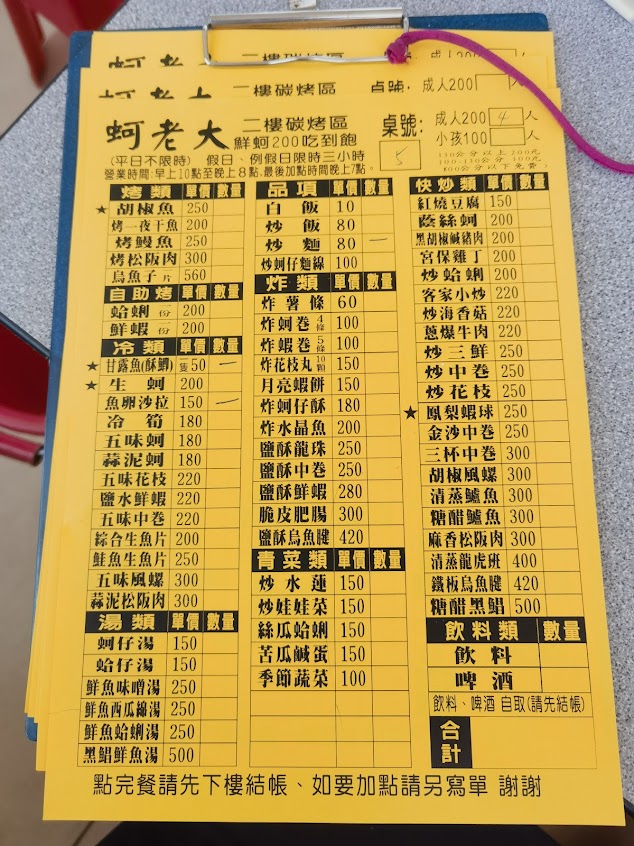 蚵老大 二樓碳烤區 桌號: 成人200 人
蚵老大 二樓碳烤區 桌號: 成人200 人
蚵老大 二樓碳烤區 桌號: 5 成人200 4 人
鮮蚵200吃到飽 小孩100 人
(平日不限時) 假日、例假日限時三小時
營業時間:早上10點至晚上8點.最後加點時間晚上7點。
烤類 單價 數量
★ 胡椒魚 250
烤一夜干魚 200
烤鰻魚 250
烤松阪肉 300
烏魚子 片 560
自助烤 單價 數量
蛤蜊 份 200
鮮蝦 份 200
冷類 單價 數量
★ 甘露魚(酥鯽) 一隻50 一
★ 生蚵 200
魚卵沙拉 150 一
冷筍 180
五味蚵 180
蒜泥蚵 180
五味花枝 220
鹽水鮮蝦 220
五味中卷 220
綜合生魚片 200
鮭魚生魚片 250
五味風螺 300
蒜泥松阪肉 300
湯類 單價 數量
蚵仔湯 150
蛤仔湯 150
鮮魚味噌湯 250
鮮魚西瓜綿湯 250
鮮魚蛤蜊湯 250
黑鯧鮮魚湯 500
品項 單價 數量
白飯 10
炒飯 80
炒麵 80 一
炒蚵仔麵線 100
炸類 單價 數量
炸薯條 60
炸蚵卷 4條 100
炸蝦卷 5條 100
炸花枝丸 10顆 150
月亮蝦餅 150
炸蚵仔酥 180
炸水晶魚 200
鹽酥龍珠 250
鹽酥中卷 250
鹽酥鮮蝦 280
脆皮肥腸 300
鹽酥烏魚腱 420
青菜類 單價 數量
炒水蓮 150
炒娃娃菜 150
絲瓜蛤蜊 150
苦瓜鹹蛋 150
季節蔬菜 100
快炒類 單價 數量
紅燒豆腐 150
蔭絲蚵 200
黑胡椒鹹豬肉 200
宮保雞丁 200
炒蛤蜊 200
客家小炒 220
炒海香菇 220
蔥爆牛肉 220
炒三鮮 250
炒中卷 250
炒花枝 250
★ 鳳梨蝦球 250
金沙中卷 250
三杯中卷 300
胡椒風螺 300
清蒸鱸魚 300
糖醋鱸魚 300
麻香松阪肉 300
清蒸龍虎班 400
鐵板烏魚腱 420
糖醋黑鯧 500
飲料類 數量
飲料
啤酒
飲料、啤酒 自取(請先結帳)
合計
點完餐請先下樓結帳、如要加點請另寫單 謝謝